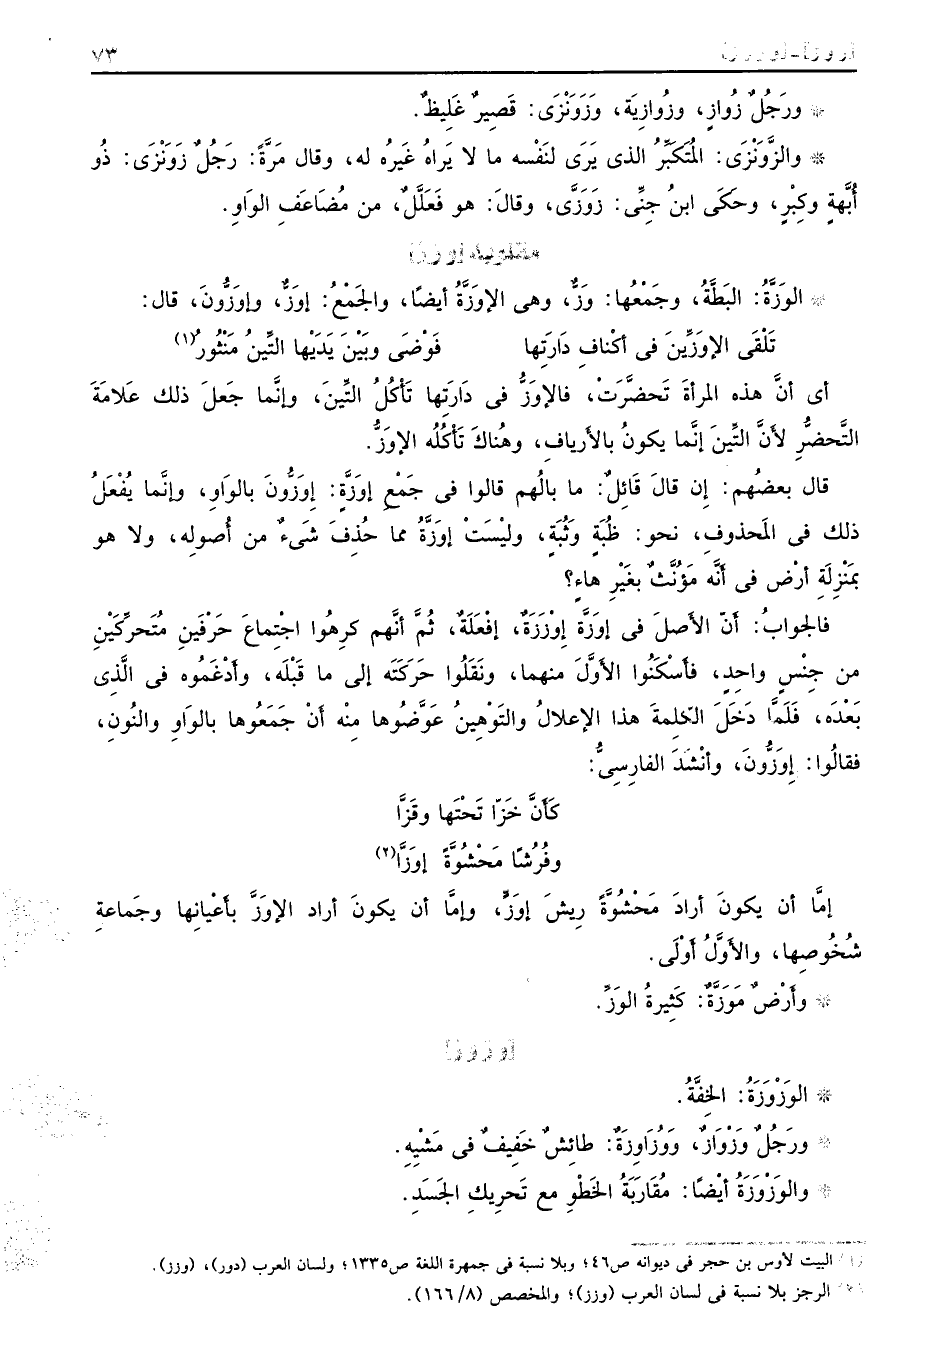 [و ز و ز]-[و ز ز] ٧٣
* ورَجُلٌ زُوازٍ، وزُوازِيَة، وَزَوَنْزَى: قَصِيرٌ غَلِيظٌ.
* والزَّوَنْزَى: المُتَكَبِّرُ الذى يَرَى لنَفْسه ما لا يَراهُ غَيرُه له، وقال مَرَّةً: رَجُلٌ زَوَنْزَى: ذُو
أُبَّهةٍ وكِبْرٍ، وحَكَى ابنُ جِنِّى: زَوَزَّى، وقالَ: هو فَعَلَّلٌ، من مُضَاعَفِ الوَاوِ.
مقلوبه [و ز ز]
* الوَزَّةُ: البَطَّةُ، وجَمْعُها: وَزٌّ، وهى الإوَزَّةُ أيضًا، والجَمْعُ: إوَزٌّ، وإوَزُّونَ، قال:
تَلْقَى الإوَزِّينَ فى أكْنافِ دَارَتِها فَوْضَى وبَيْنَ يَدَيْها التِّينُ مَنْثُورُ(١)
أى أنَّ هذه المرأةَ تَحضَّرَتْ، فالإوَزُّ فى دَارَتِها تَأكُلُ التِّينَ، وإنَّما جَعلَ ذلك عَلامَةَ
التَّحضُّرِ لأنَّ التِّينَ إنَّما يكونُ بالأريافِ، وهُناكَ تَأكُلُه الإوَزُّ.
قال بعضُهم: إن قالَ قَائِلٌ: ما بالُهم قالوا فى جَمْعِ إوَزَّةٍ: إوَزُّونَ بالوَاوِ، وإنَّما يُفْعَلُ
ذلك فى المَحذوفِ، نحو: ظُبَةٍ وَثُبَةٍ، وليْسَتْ إوَزَّةُ مما حُذِفَ شَىءٌ من أُصولِه، ولا هو
بمَنْزِلَةِ أرْض فى أنَّه مَؤنَّثٌ بغَيْرِ هاءٍ؟
فالجوابُ: أنّ الأصلَ فى إوَزَّة إوْزَزَةٌ، إفْعَلَةٌ، ثُمَّ أنَّهم كرِهُوا اجْتِماعَ حَرْفَينِ مُتَحرِّكَيْنِ
من جِنْسٍ واحِدٍ، فَأسْكَنُوا الأوَّلَ منهما، ونَقَلُوا حَرَكَتَه إلى ما قَبْلَه، وأدْغَمُوه فى الَّذى
بَعْدَه، فَلَمَّا دَخَلَ الكَلِمةَ هذا الإعلالُ والتَوْهِينُ عَوَّضُوها مِنْه أنْ جَمَعُوها بالوَاوِ والنُونِ،
فقالُوا: إوَزُّونَ، وأنْشَدَ الفارِسِىُّ:
كَأنَّ خَزّا تَحْتَها وقَزَّا
وفُرُشًا مَحْشُوَّةً إوَزَّا(٢)
إمَّا أن يكونَ أرادَ مَحْشُوَّةً رِيشَ إوَزٍّ، وإمَّا أن يكونَ أراد الإوَزَّ بأعْيانِها وجَماعةِ
شُخُوصِها، والأوَّلُ أوْلَى.
* وأرْضٌ مَوَزَّةٌ: كَثِيرةُ الوَزِّ.
[و ز و ز]
* الوَزْوَزَةُ: الخِفَّةُ.
* ورَجُلٌ وَزْوَازٌ، وَوُزَاوِزَةٌ: طائشٌ خَفِيفٌ فى مَشْيِهِ.
* والوَزْوَزَةُ أيْضًا: مُقَارَبَةُ الخَطْوِ مع تَحرِيكِ الجَسَدِ.
(١) البيت لأوس بن حجر فى ديوانه ص٤٦؛ وبلا نسبة فى جمهرة اللغة ص١٣٣٥؛ ولسان العرب (دور)، (وزز).
(٢) الرجز بلا نسبة فى لسان العرب (وزز)؛ والمخصص (٨/ ١٦٦).